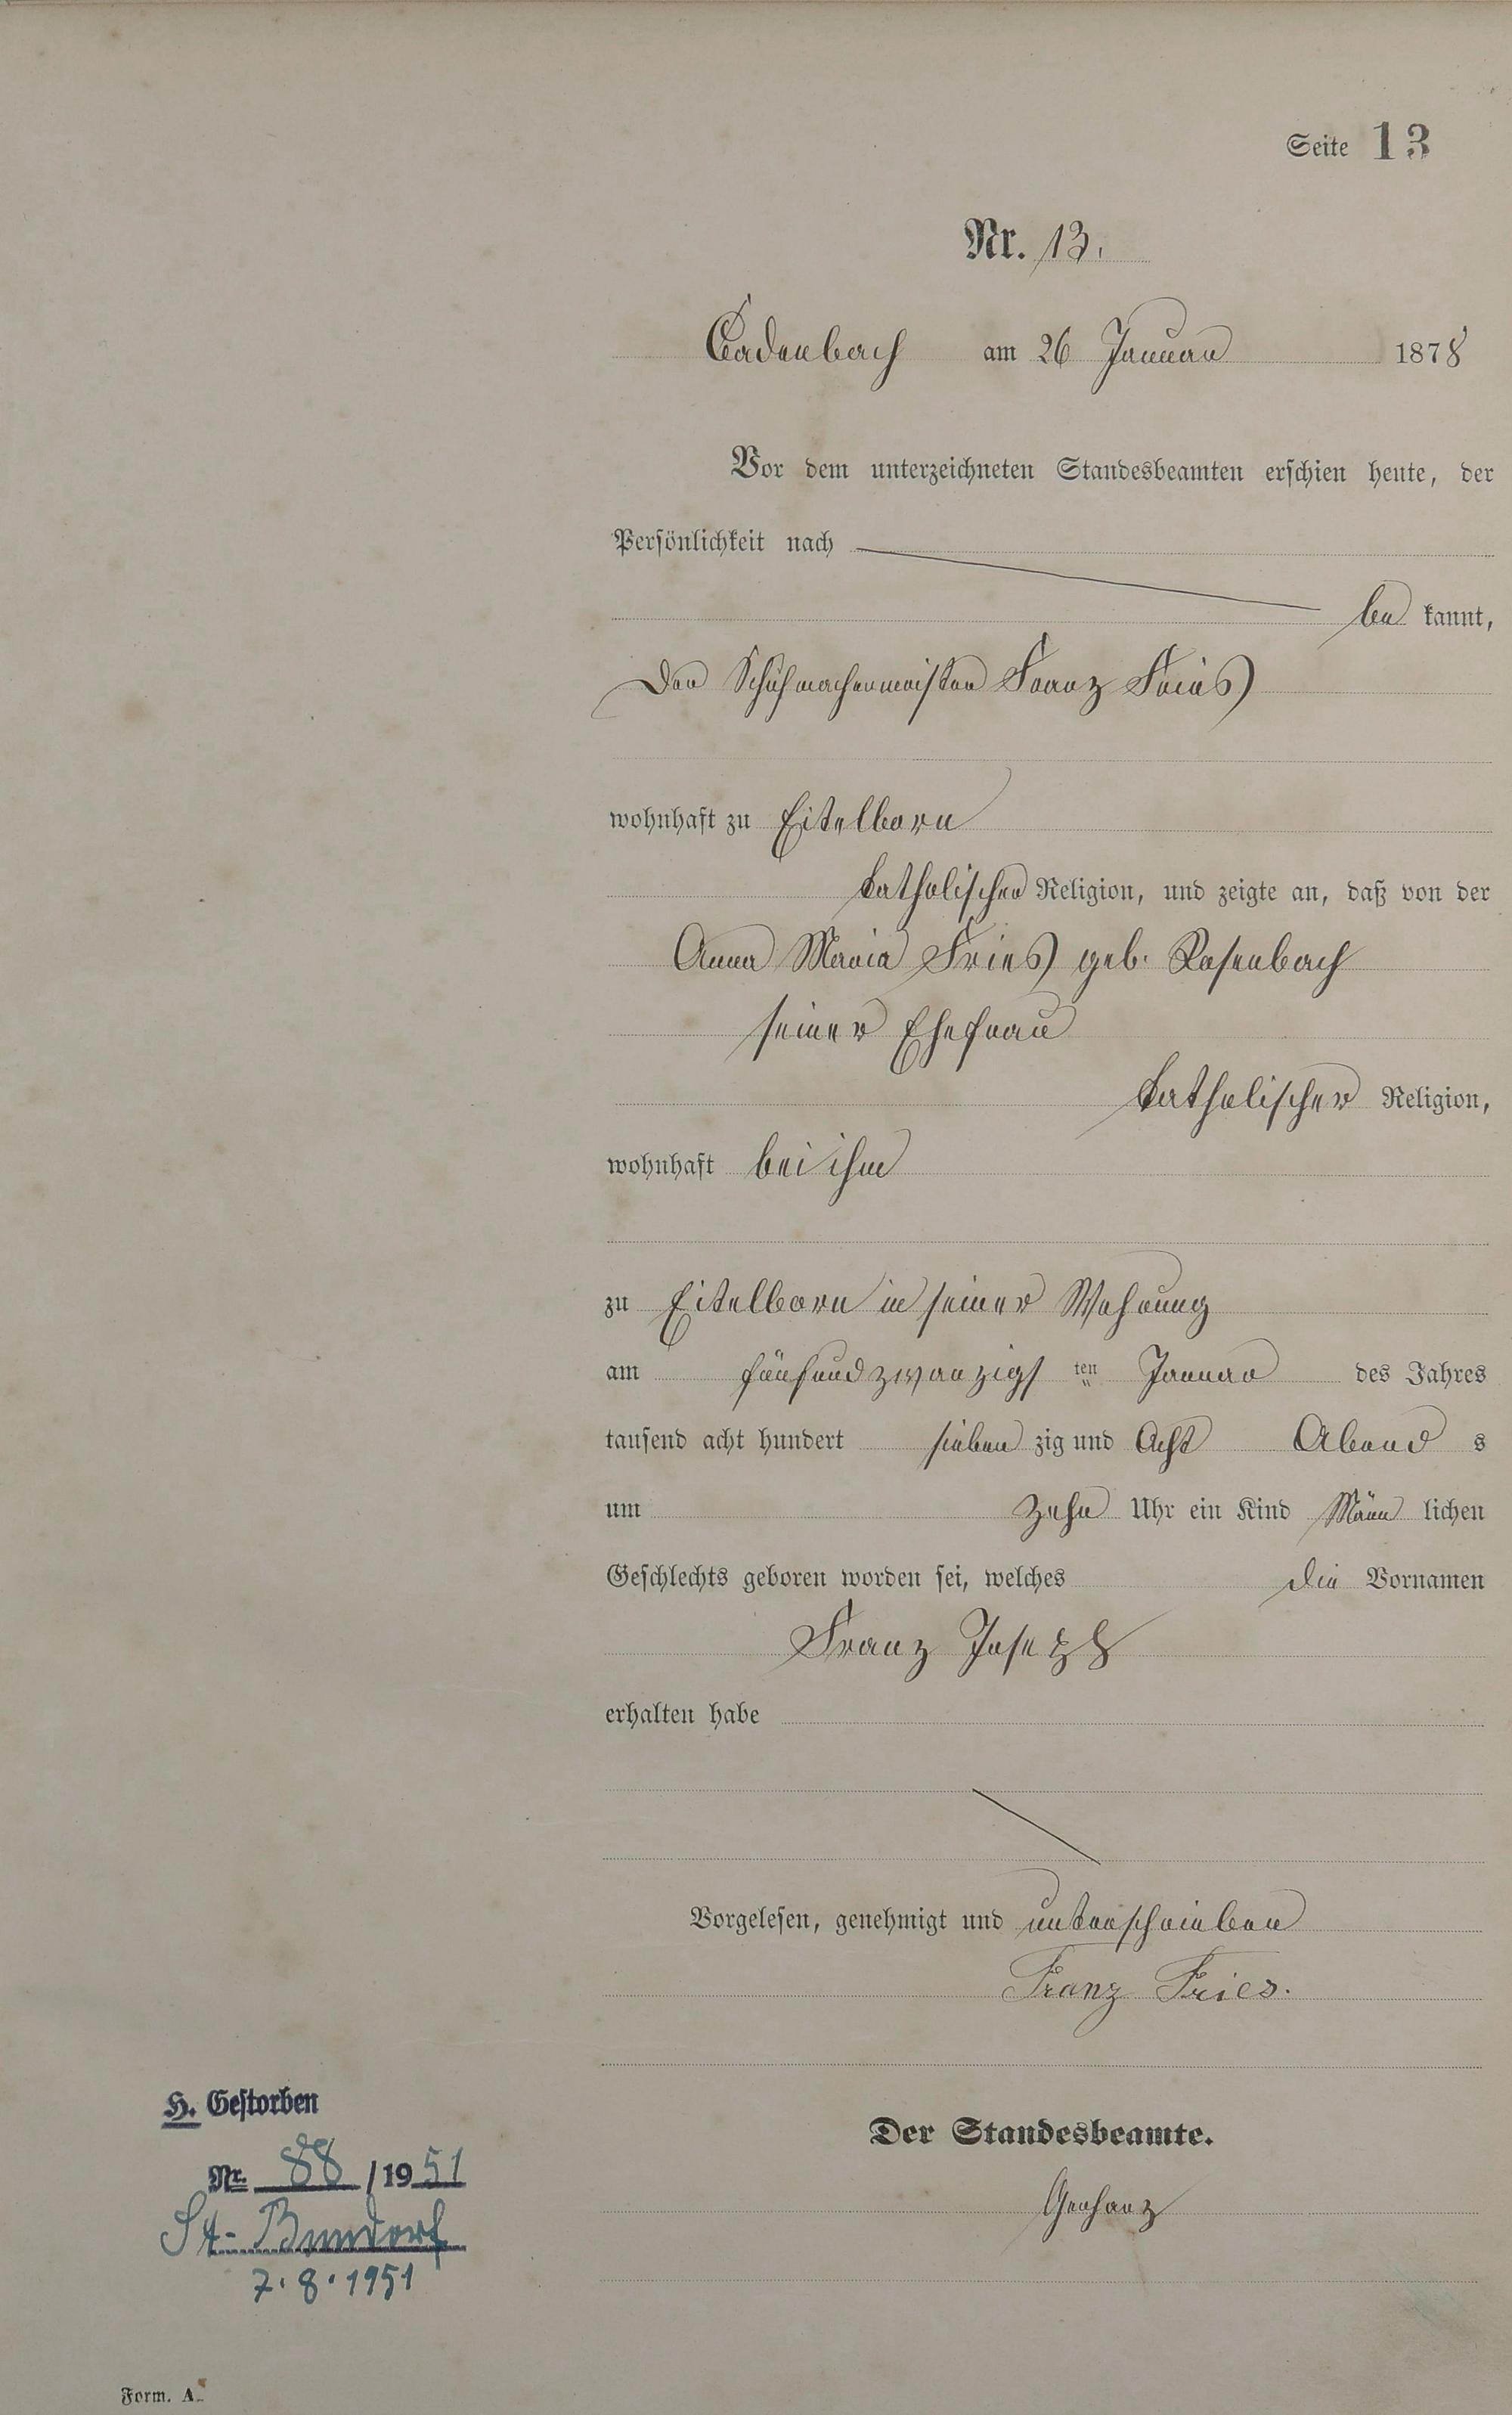 Seite 13
Nr. 13.
Cadenbach am 26 Januar 1878
Vor dem unterzeichneten Standesbeamten erschien heute, der
Persönlichkeit nach
be kannt,
Der Schuhmachermeister Franz Fries
wohnhaft zu Eitelborn
katholischer Religion, und zeigte an, daß von der
Anna Maria Fries geb. Rosenbach
seiner Ehefrau
katholischer Religion,
wohnhaft bei ihm
zu Eitelborn in seiner Wohnung
am fünfundzwanzigs ten Januar des Jahres
tausend acht hundert sieben zig und Acht Abend s
um Zehn Uhr ein Kind Männ lichen
Geschlechts geboren worden sei, welches die Vornamen
Franz Joseph
erhalten habe
Vorgelesen, genehmigt und unterschrieben
Franz Fries.
Der Standesbeamte.
Gerharz
H. Gestorben
Nr. 88 / 1951
St.
7.8.1951
Form. A.